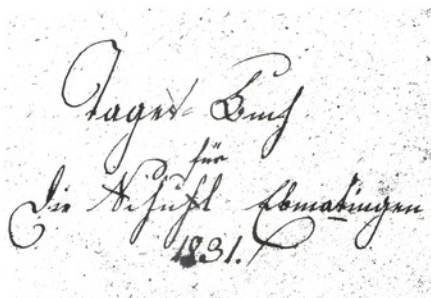 Tages Buch
für
die Schuhl Ebmatingen
1831.